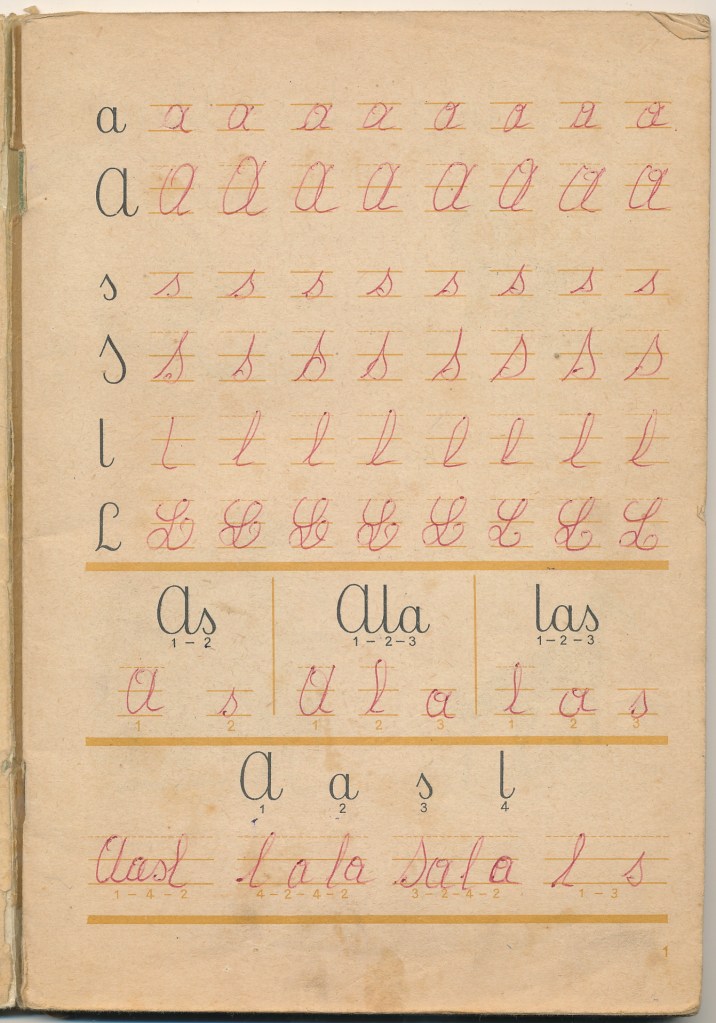 a a a a a a a a a
A A A A A A A A A
s s s s s s s s s
S S S S S S S S S
l l l l l l l l l
L L L L L L L L L
As Ala las
1 – 2 1 – 2 – 3 1 – 2 – 3
A s A l a l a s
1 2 1 2 3 1 2 3
A a s l
1 2 3 4
Aasl l a la Sal a l s
1 – 4 – 2 4 – 2 – 4 – 2 3 – 2 – 4 – 2 1 – 3
1